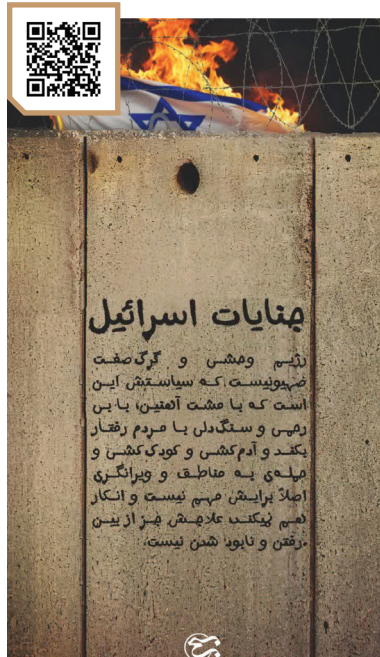 جنایات اسرائیل
رژیم وحشی و گرگ‌صفت
صهیونیست که سیاستش این
است که با مشت آهنین، با بی
رحمی و سنگدلی با مردم رفتار
بکند و آدم‌کشی و کودک‌کشی و
حمله‌ی به مناطق و ویرانگری
اصلاً برایش مهم نیست و انکار
هم نمیکند، علاجش جز از بین
رفتن و نابود شدن نیست.